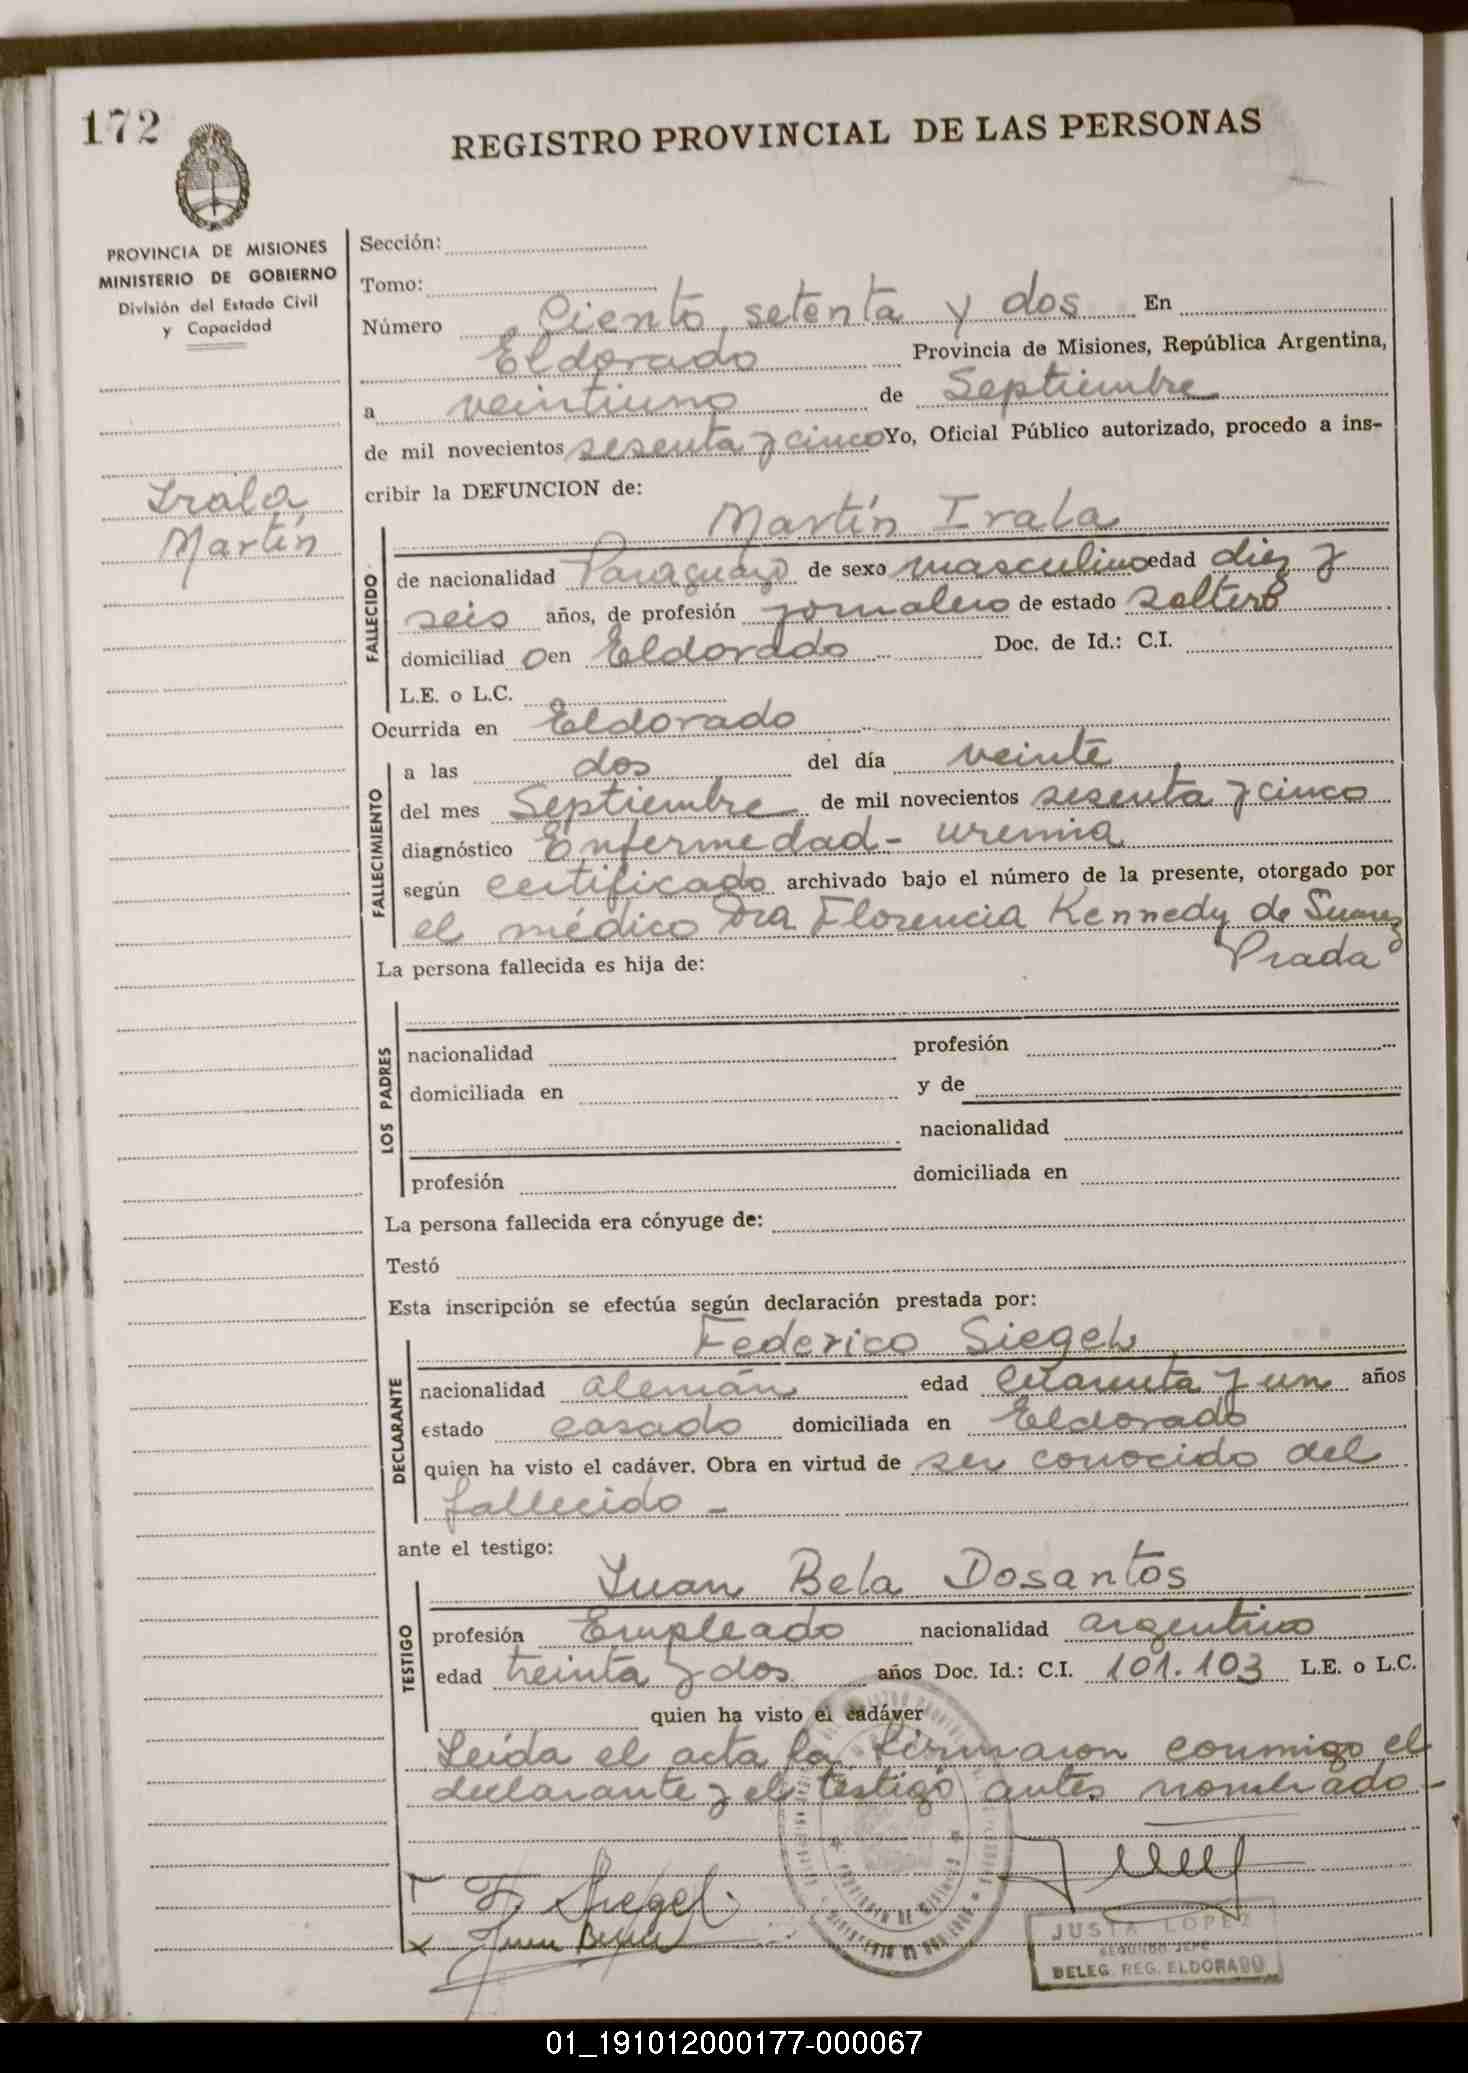 172
REGISTRO PROVINCIAL DE LAS PERSONAS
PROVINCIA DE MISIONES
MINISTERIO DE GOBIERNO
División del Estado Civil
y Capacidad
Irala
Martín
Sección:
Tomo:
Número Ciento setenta y dos En
Eldorado Provincia de Misiones, República Argentina,
a veintiuno de Septiembre
de mil novecientos sesenta y cinco Yo, Oficial Público autorizado, procedo a ins-
cribir la DEFUNCION de:
FALLECIDO
Martín Irala
de nacionalidad Paraguayo de sexo masculino edad diez y
seis años, de profesión jornalero de estado soltero
domiciliad o en Eldorado Doc. de Id.: C.I.
L.E. o L.C.
Ocurrida en Eldorado
FALLECIMIENTO
a las dos del día veinte
del mes Septiembre de mil novecientos sesenta y cinco
diagnóstico Enfermedad - uremia
según certificado archivado bajo el número de la presente, otorgado por
el médico Dra Florencia Kennedy de Suarez
Prada
La persona fallecida es hija de:
LOS PADRES
nacionalidad profesión
domiciliada en y de
nacionalidad
profesión domiciliada en
La persona fallecida era cónyuge de:
Testó
Esta inscripción se efectúa según declaración prestada por:
DECLARANTE
Federico Siegel
nacionalidad alemán edad cuarenta y un años
estado casado domiciliada en Eldorado
quien ha visto el cadáver. Obra en virtud de ser conocido del
fallecido -
ante el testigo:
TESTIGO
Juan Bela Dosantos
profesión Empleado nacionalidad argentino
edad treinta y dos años Doc. Id.: C.I. 101.103 L.E. o L.C.
quien ha visto el cadáver
Leída el acta la firmaron conmigo el
declarante y el testigo antes nombrado -
F. Siegel
Juan
JUSTA LOPEZ
SEGUNDO JEFE
DELEG. REG. ELDORADO
01_191012000177-000067